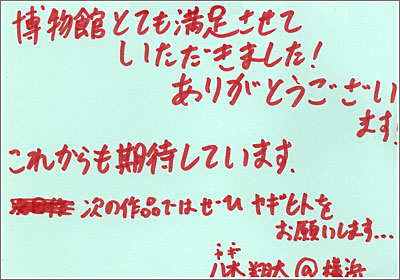 博物館とても満足させて
いただきました!
ありがとうござい
ます!
これからも期待しています.
次の作品ではぜひ ヤギヒトを
お願いします…
ヤギ
八木 翔大 @ 横浜